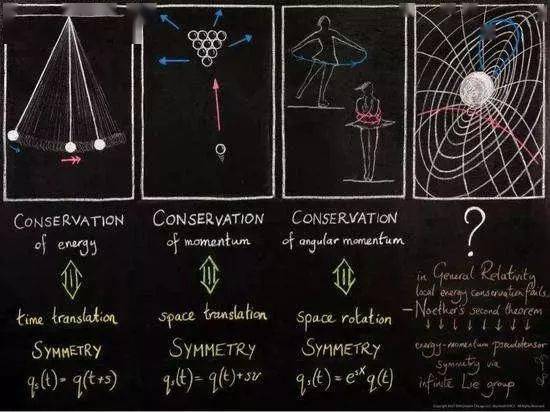 CONSERVATION
of energy
time translation
SYMMETRY
qₛ(t) = q(t+s)
CONSERVATION
of momentum
space translation
SYMMETRY
qₛ(t) = q(t)+sv
CONSERVATION
of angular momentum
space rotation
SYMMETRY
qₛ(t) = eˢˣ q(t)
?
in General Relativity
local energy conservation fails
– Noether's second theorem
energy-momentum pseudotensor
symmetry via
infinite Lie group